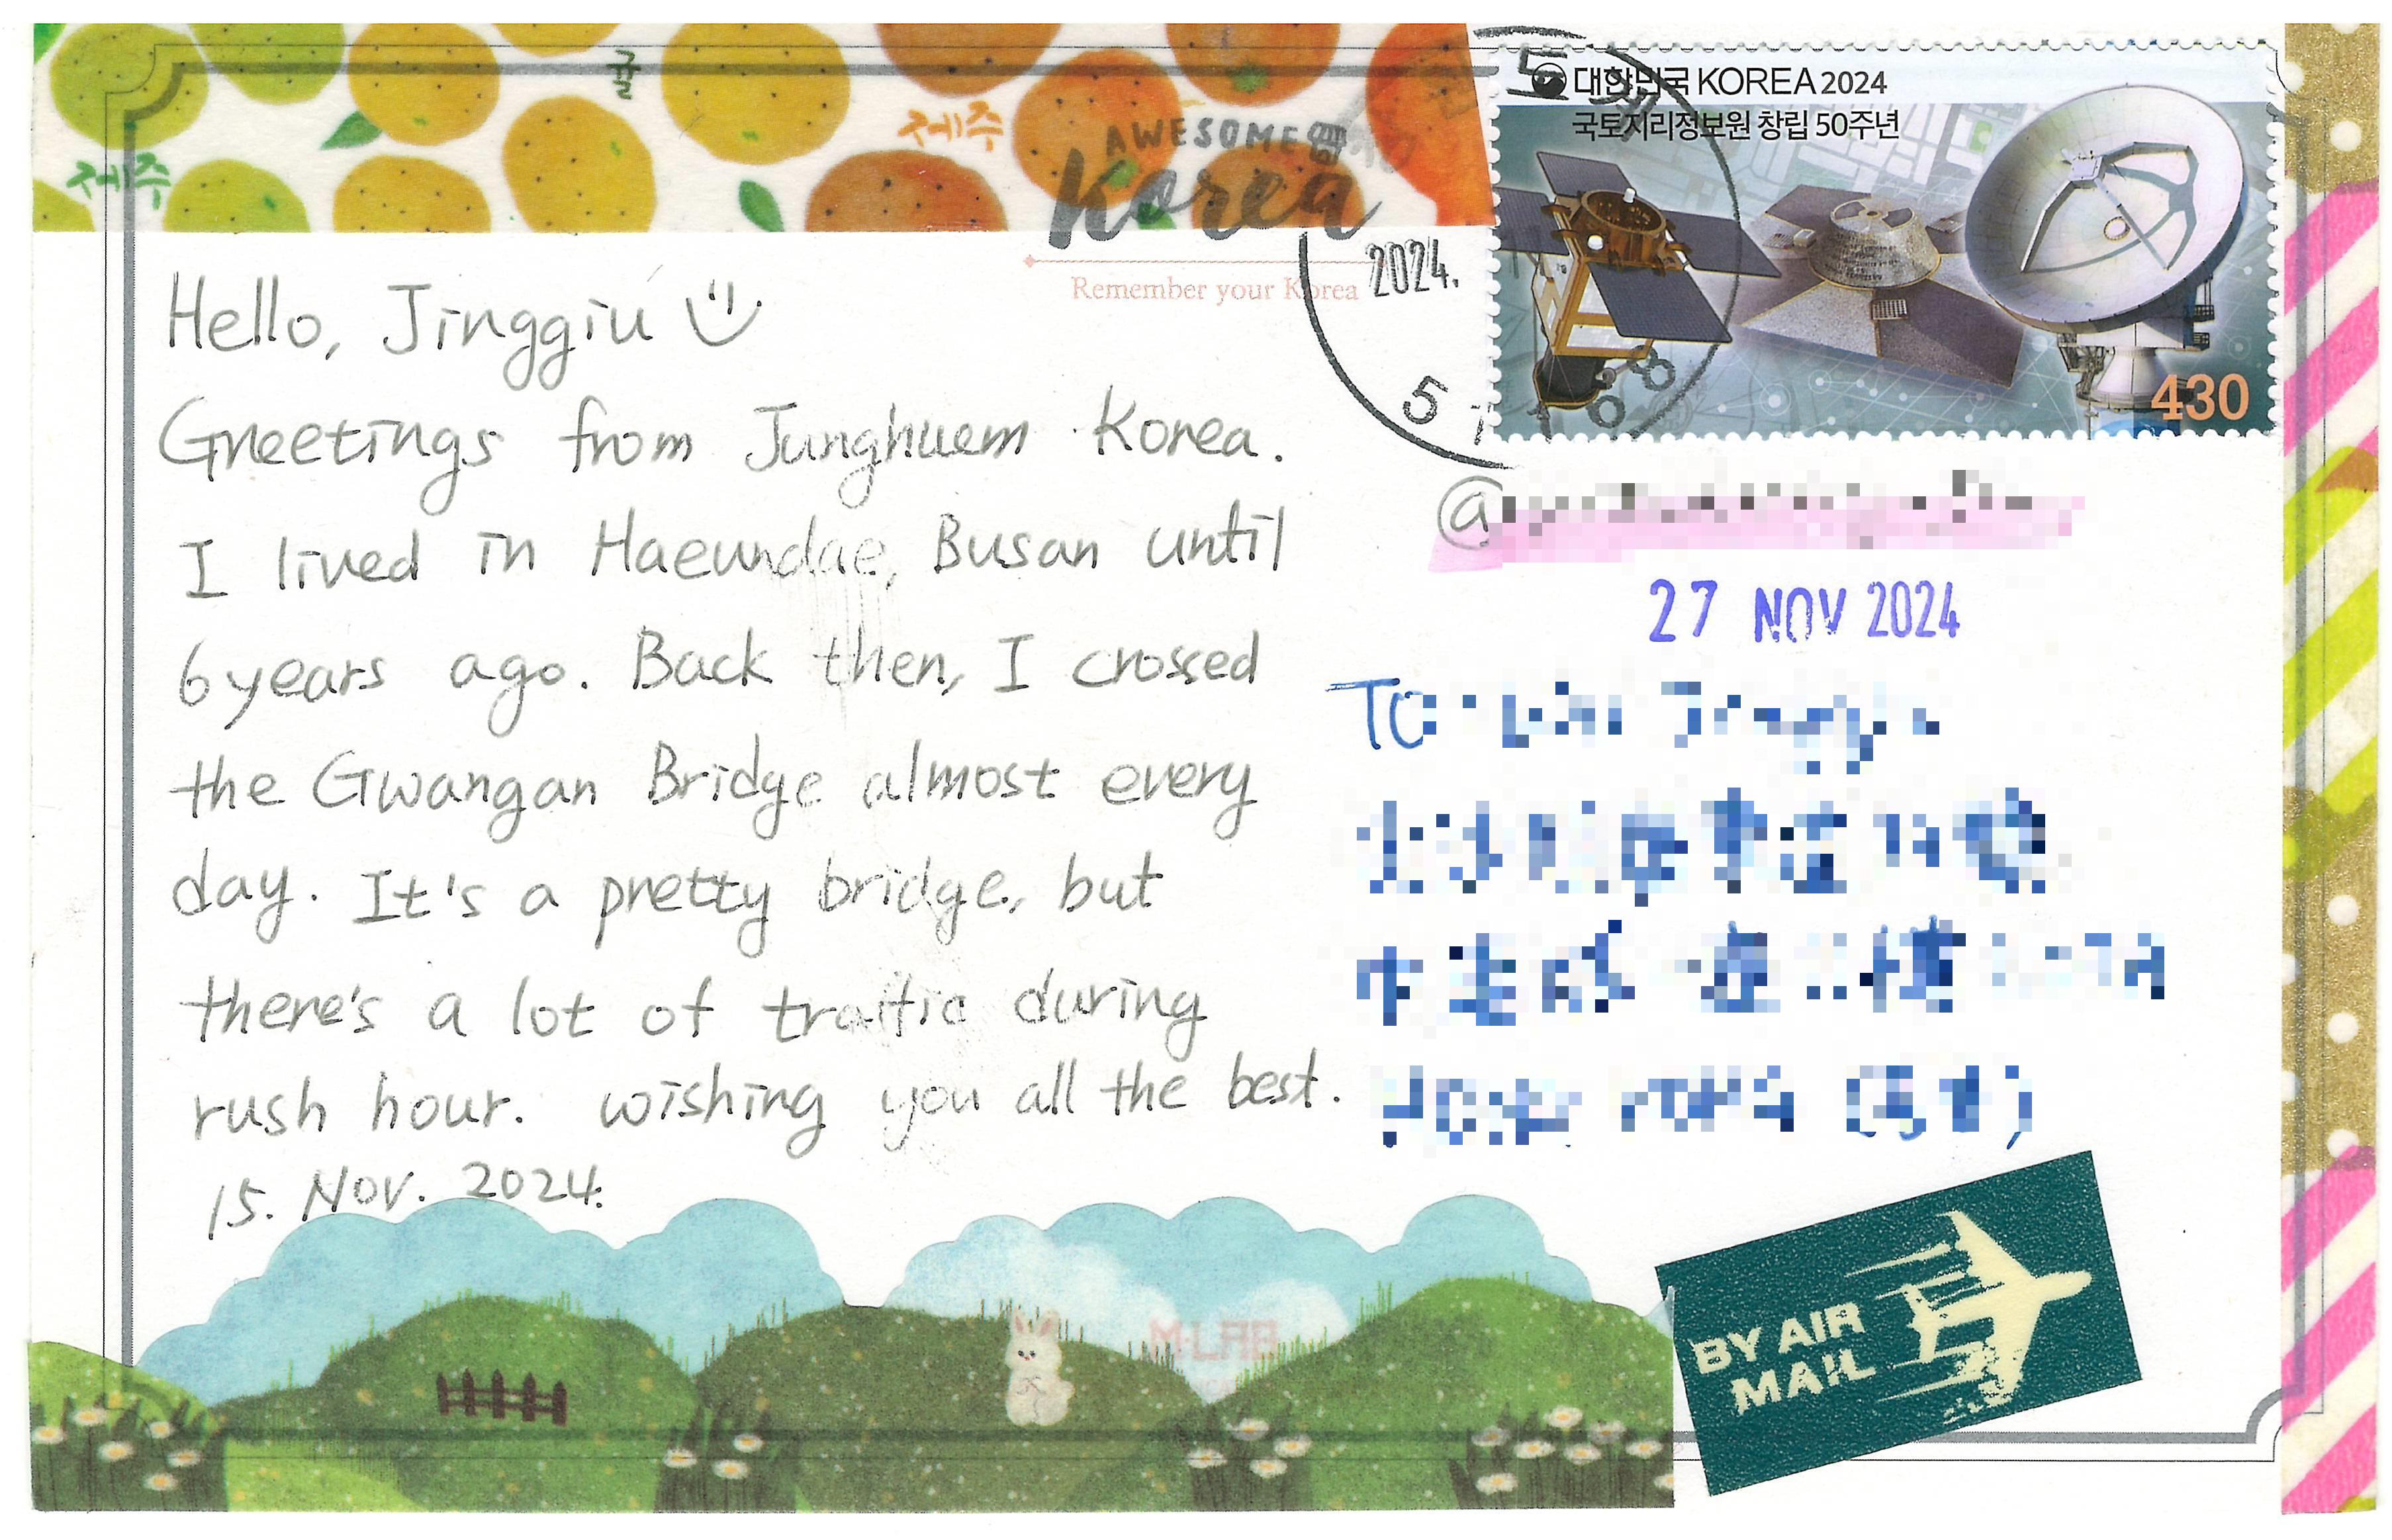 굴
제주
제주
AWESOME
Korea
Remember your Korea
대한민국 KOREA 2024
국토지리정보원 창립 50주년
430
2024.
Hello, Jinggiu
Greetings from Junghuem Korea.
I lived in Haeundae, Busan until
6 years ago. Back then, I crossed
the Gwangan Bridge almost every
day. It's a pretty bridge, but
there's a lot of traffic during
rush hour. wishing you all the best.
15. Nov. 2024.
@
27 NOV 2024
TO
M·LAB
BY AIR
MAIL